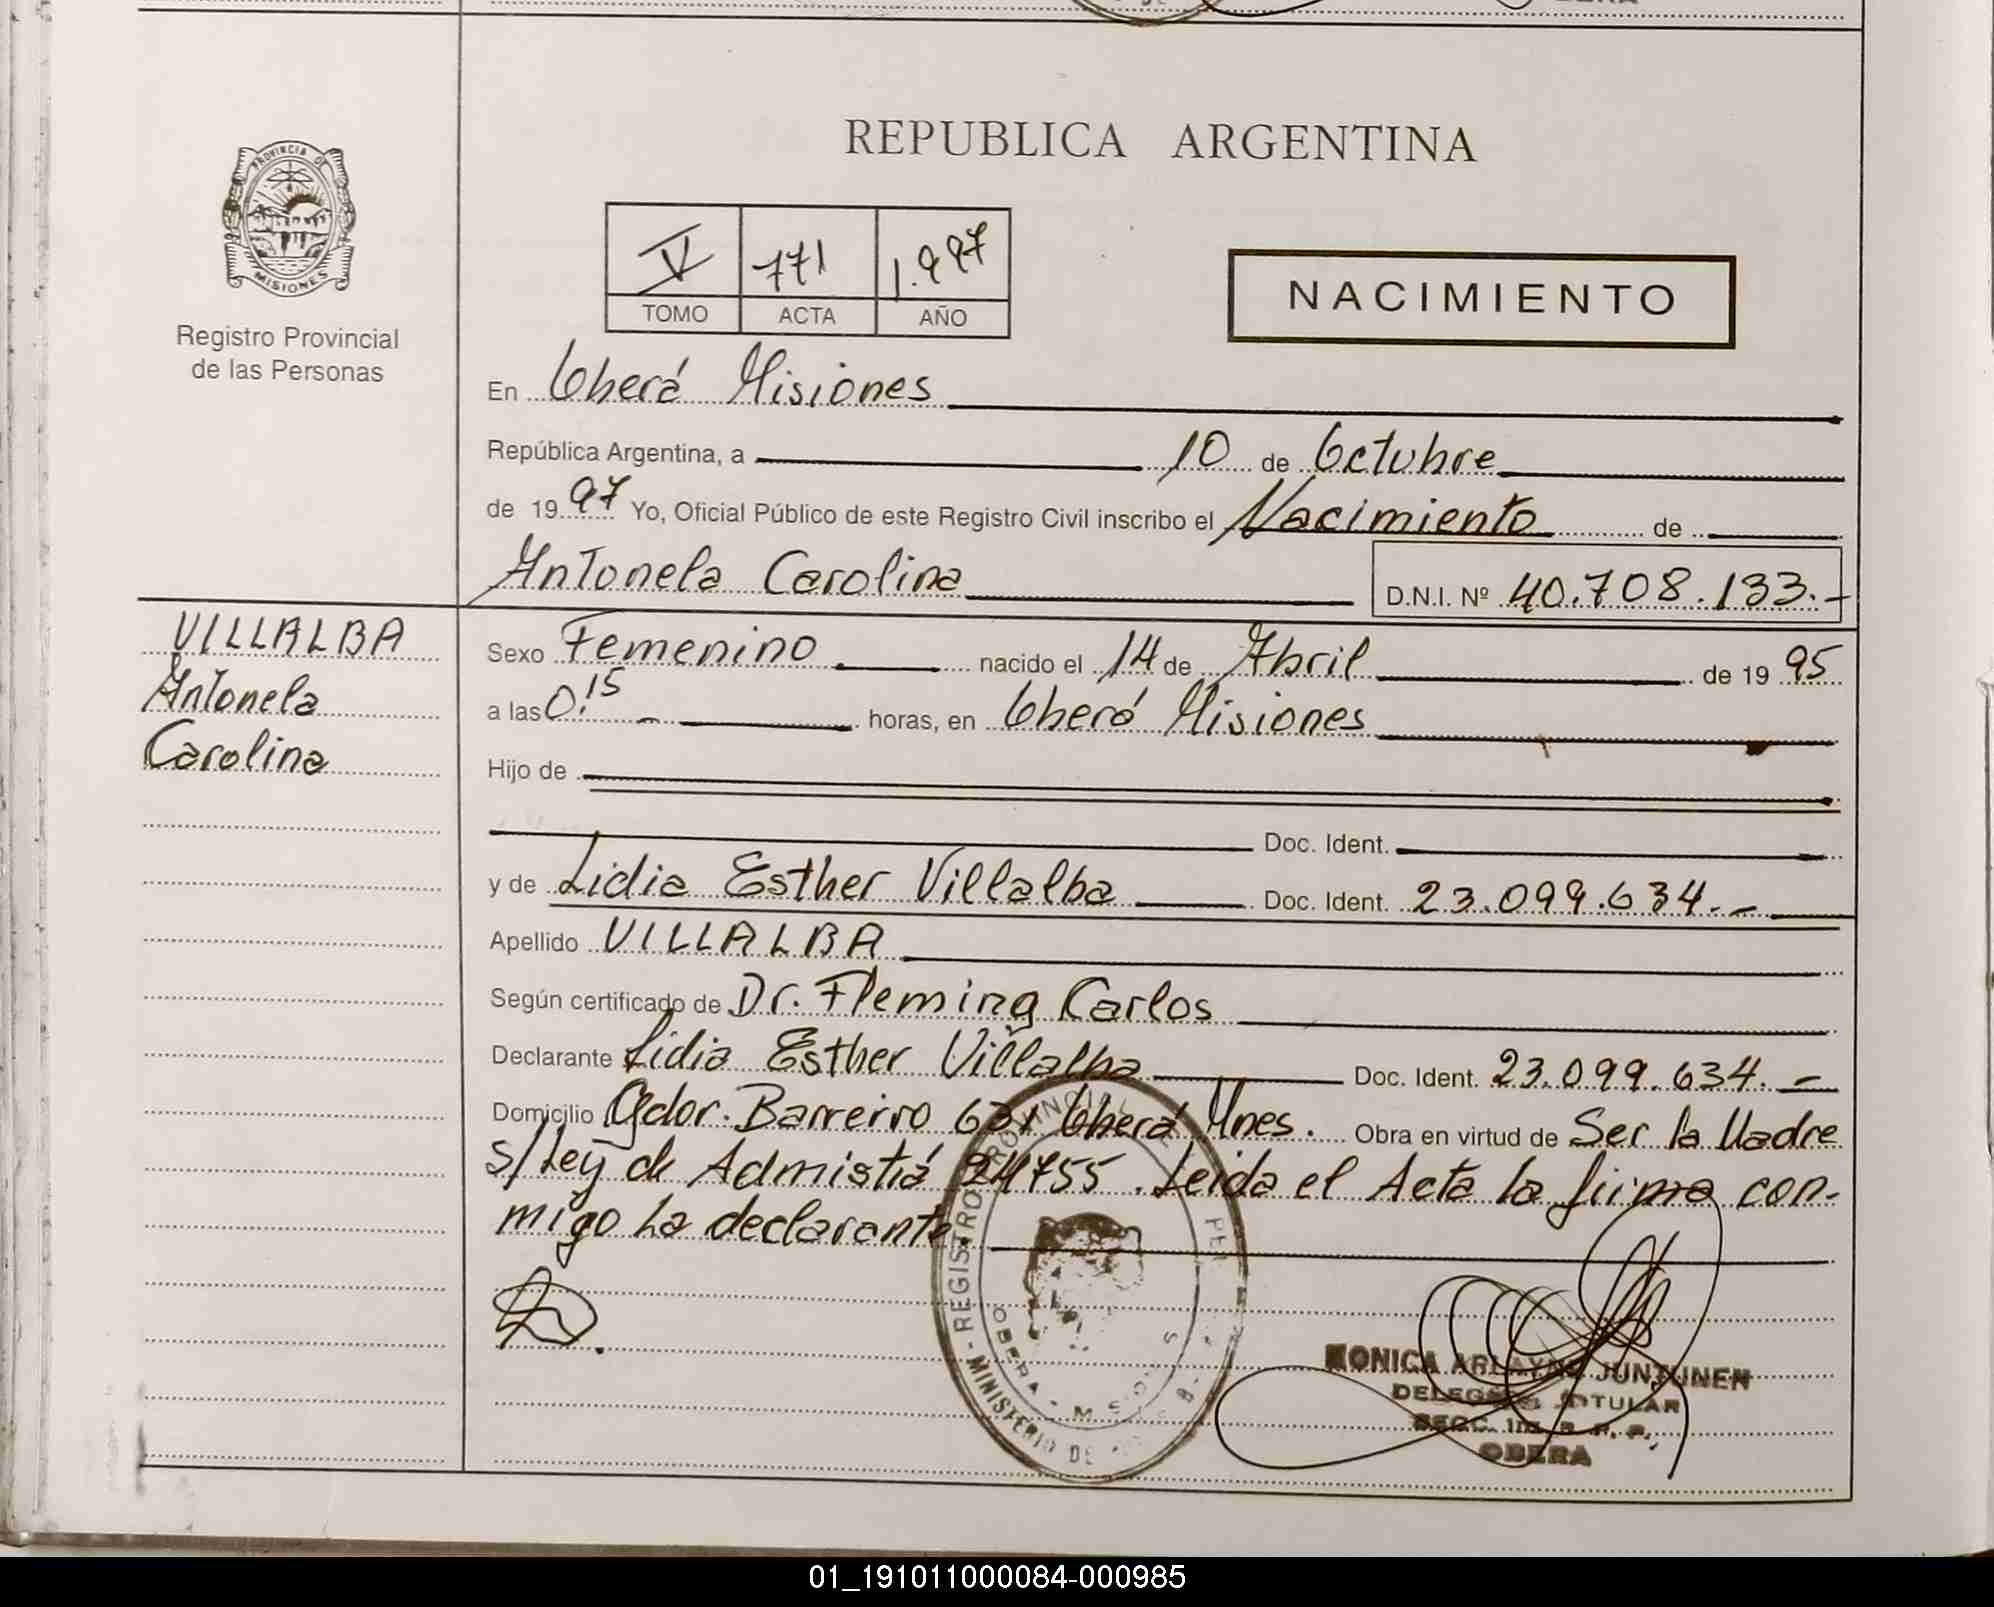 REPUBLICA ARGENTINA
PROVINCIA DE
MISIONES
Registro Provincial
de las Personas
V 771 1.997
TOMO ACTA AÑO
NACIMIENTO
En Oberá Misiones
República Argentina, a 10 de Octubre
de 1997 Yo, Oficial Público de este Registro Civil inscribo el Nacimiento de
Antonela Carolina D.N.I. Nº 40.708.133.-
VILLALBA
Antonela
Carolina
Sexo Femenino nacido el 14 de Abril de 1995
a las 0:15 - horas, en Oberá Misiones
Hijo de
Doc. Ident.
y de Lidia Esther Villalba Doc. Ident. 23.099.634.-
Apellido VILLALBA
Según certificado de Dr. Fleming Carlos
Declarante Lidia Esther Villalba Doc. Ident. 23.099.634.-
Domicilio Gdor. Barreiro 631 Oberá Mnes. Obra en virtud de Ser la Madre
s/Ley de Admistiá 24755. Leida el Acta la firma con-
migo La declarante.
REGISTRO PROVINCIAL
MINISTERIO DE
OBERA - MISIONES
MONICA ARLAYNE JUNTUNEN
DELEGADA TITULAR
SECC. 1ra R. P. P.
OBERA
01_191011000084-000985